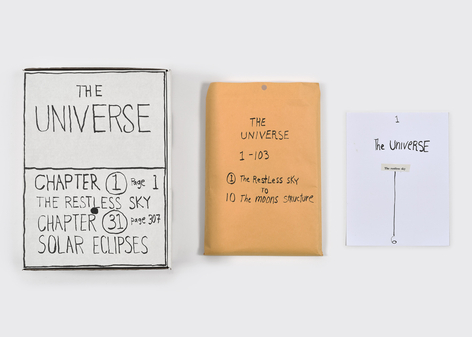 THE
UNIVERSE
CHAPTER 1 Page 1
THE RESTLESS SKY
CHAPTER 31 page 307
SOLAR ECLIPSES
THE
UNIVERSE
1-103
1 The RestLess sky
TO
10 The moons structure
1
The UNIVERSE
The restless sky
6